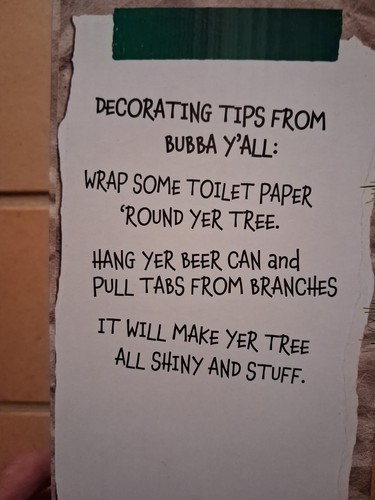 DECORATING TIPS FROM
BUBBA Y'ALL:
WRAP SOME TOILET PAPER
'ROUND YER TREE.
HANG YER BEER CAN and
PULL TABS FROM BRANCHES
IT WILL MAKE YER TREE
ALL SHINY AND STUFF.